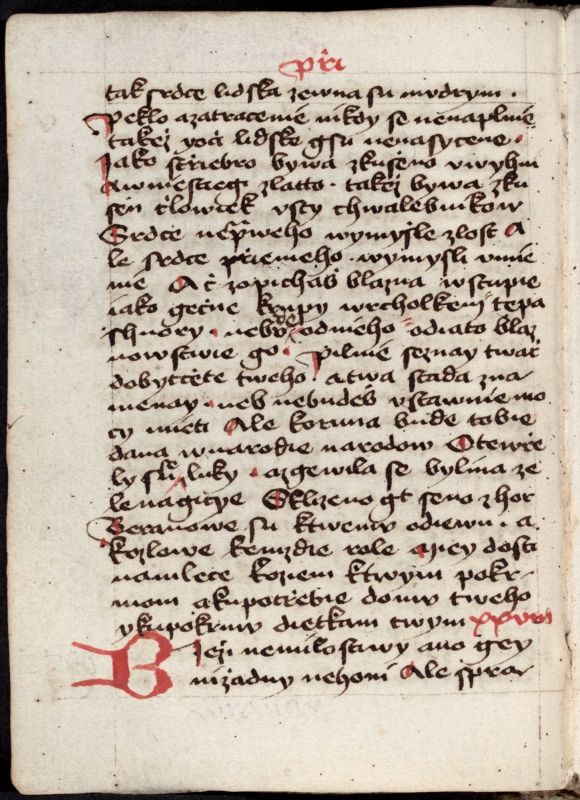 při
tak srdce lidska zewna su mudrym ·
Peklo a zatracenie nikdy se nenaplnie
takež yoči lidske gsu nenasycene ·
Jako střiebro bywa zkuseno vwyhni
A wniesteg zlatto · takež bywa zku
sen člowiek vsty chwalebnikow
Srdce nepraweho wymysle zlost A
le srdce přiemeho · wymysli vmie
nie Ač zopichaš blazna wstupie
iako gečne krupy wrcholkem tepa
shuory · nebude odnieho odiato blaz
nowstwie geo · Pilnie seznay twař
dobytčete tweho · a twa stada zna
menay · neb nebudeš vstawnie mo
cy mieti Ale koruna bude tobie
dana w narodie narodow Otewře
ly su luky · a zgewila se bylina ze
lenagicye Sklizeno gt seno z hor
Beranowe su k twemu odiewu · a
kozlowe kemzdie role Miey dosti
na mlece koziem k twym pokr
mom a kupotřebie domu tweho
y kupokrmu dietkam twym xxviii
Bieži nemilostiwy ano gey
nižadny nehoni Ale spra